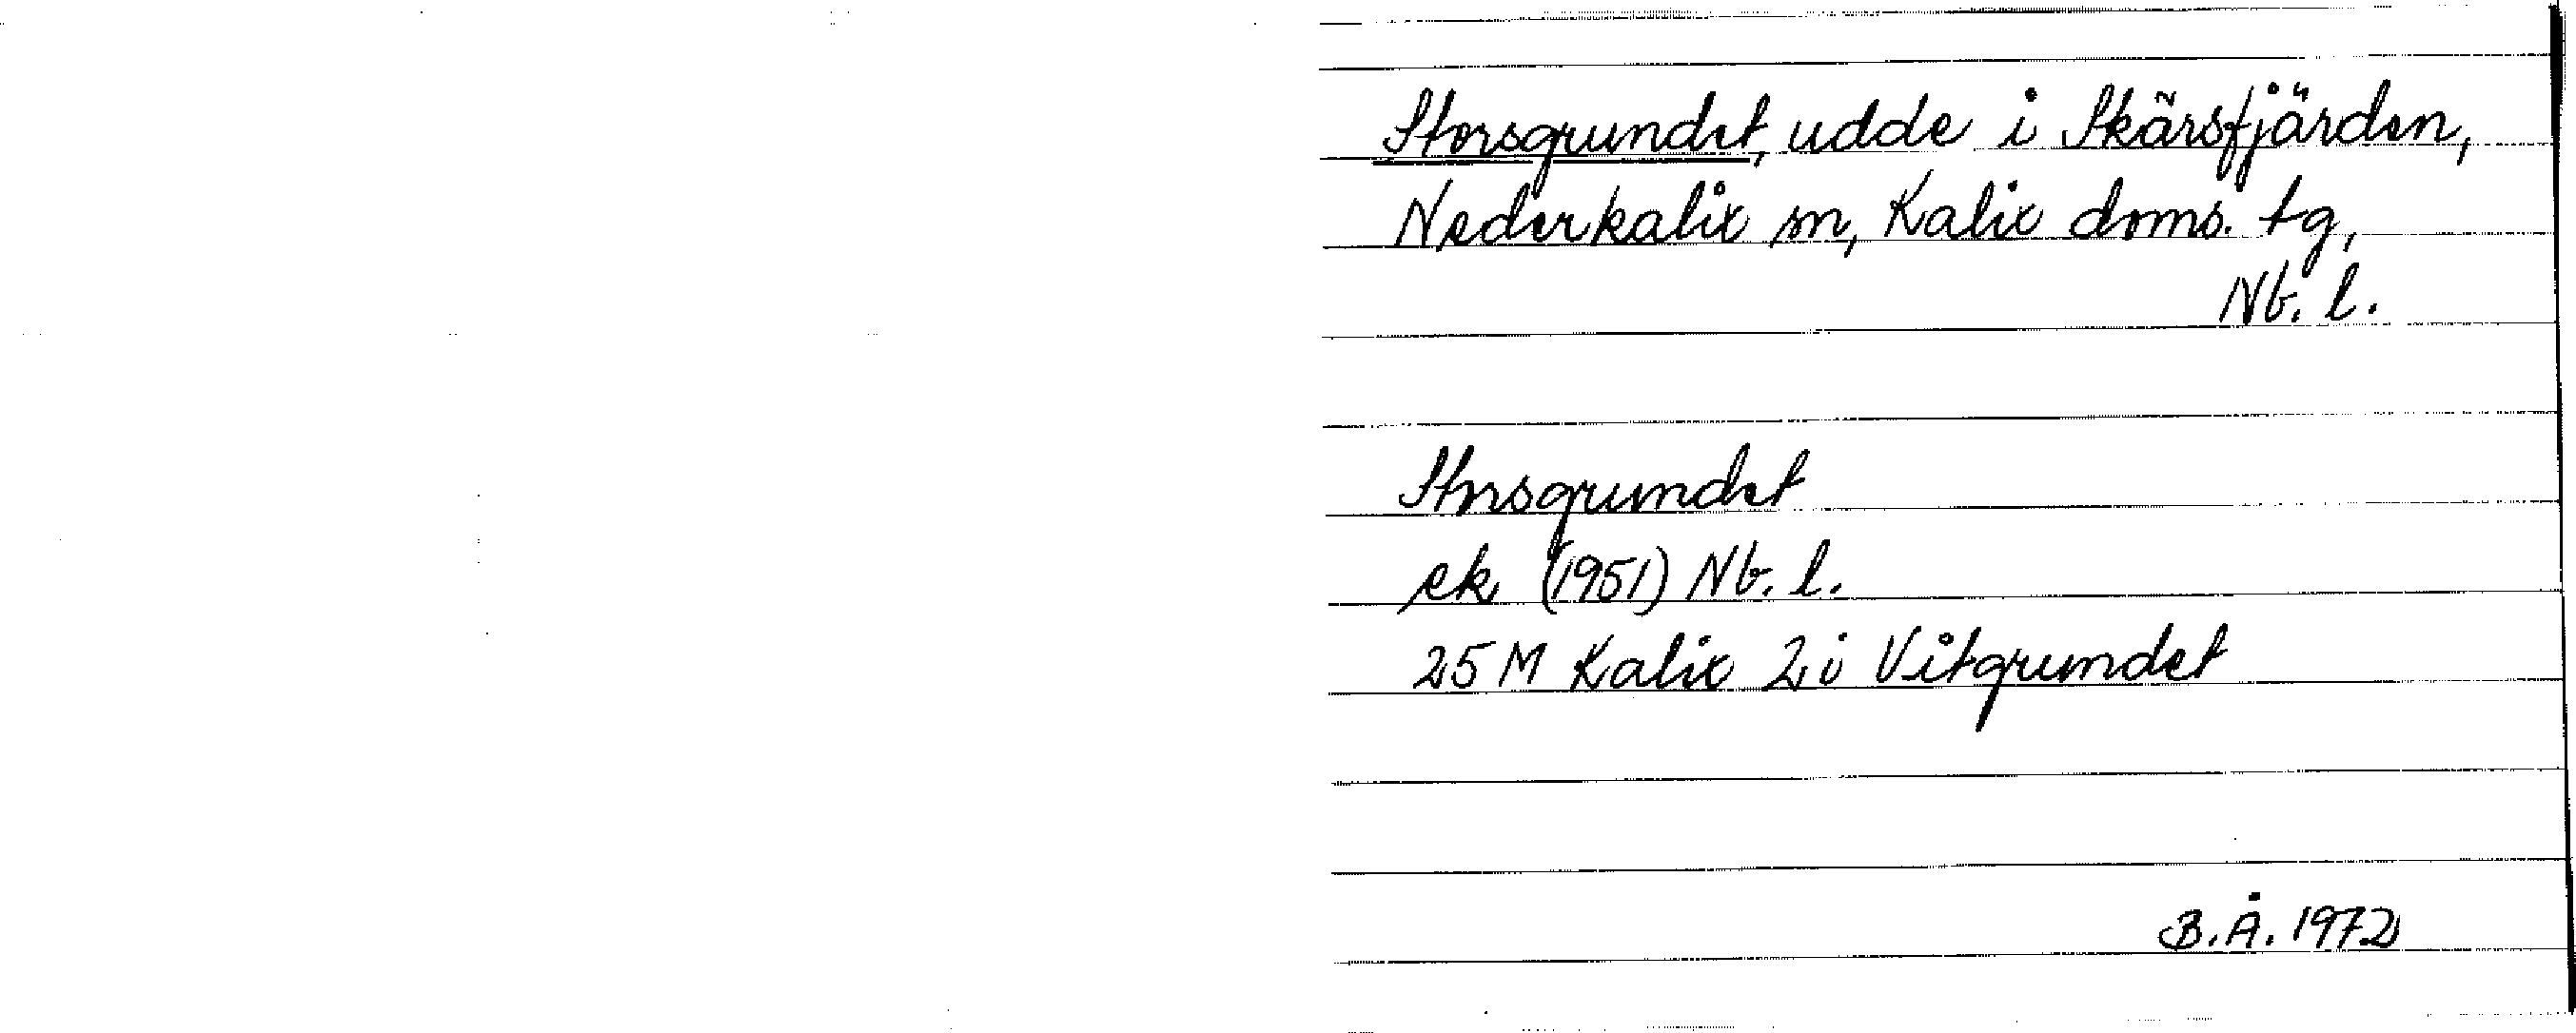 Storsgrundet, udde i Skärsfjärden,
Nederkalix sn, Kalix doms. tg,
Nb. l.
Storsgrundet
ek (1951) Nb. l.
25 M Kalix 2 i Vitgrundet
B.Å. 1972